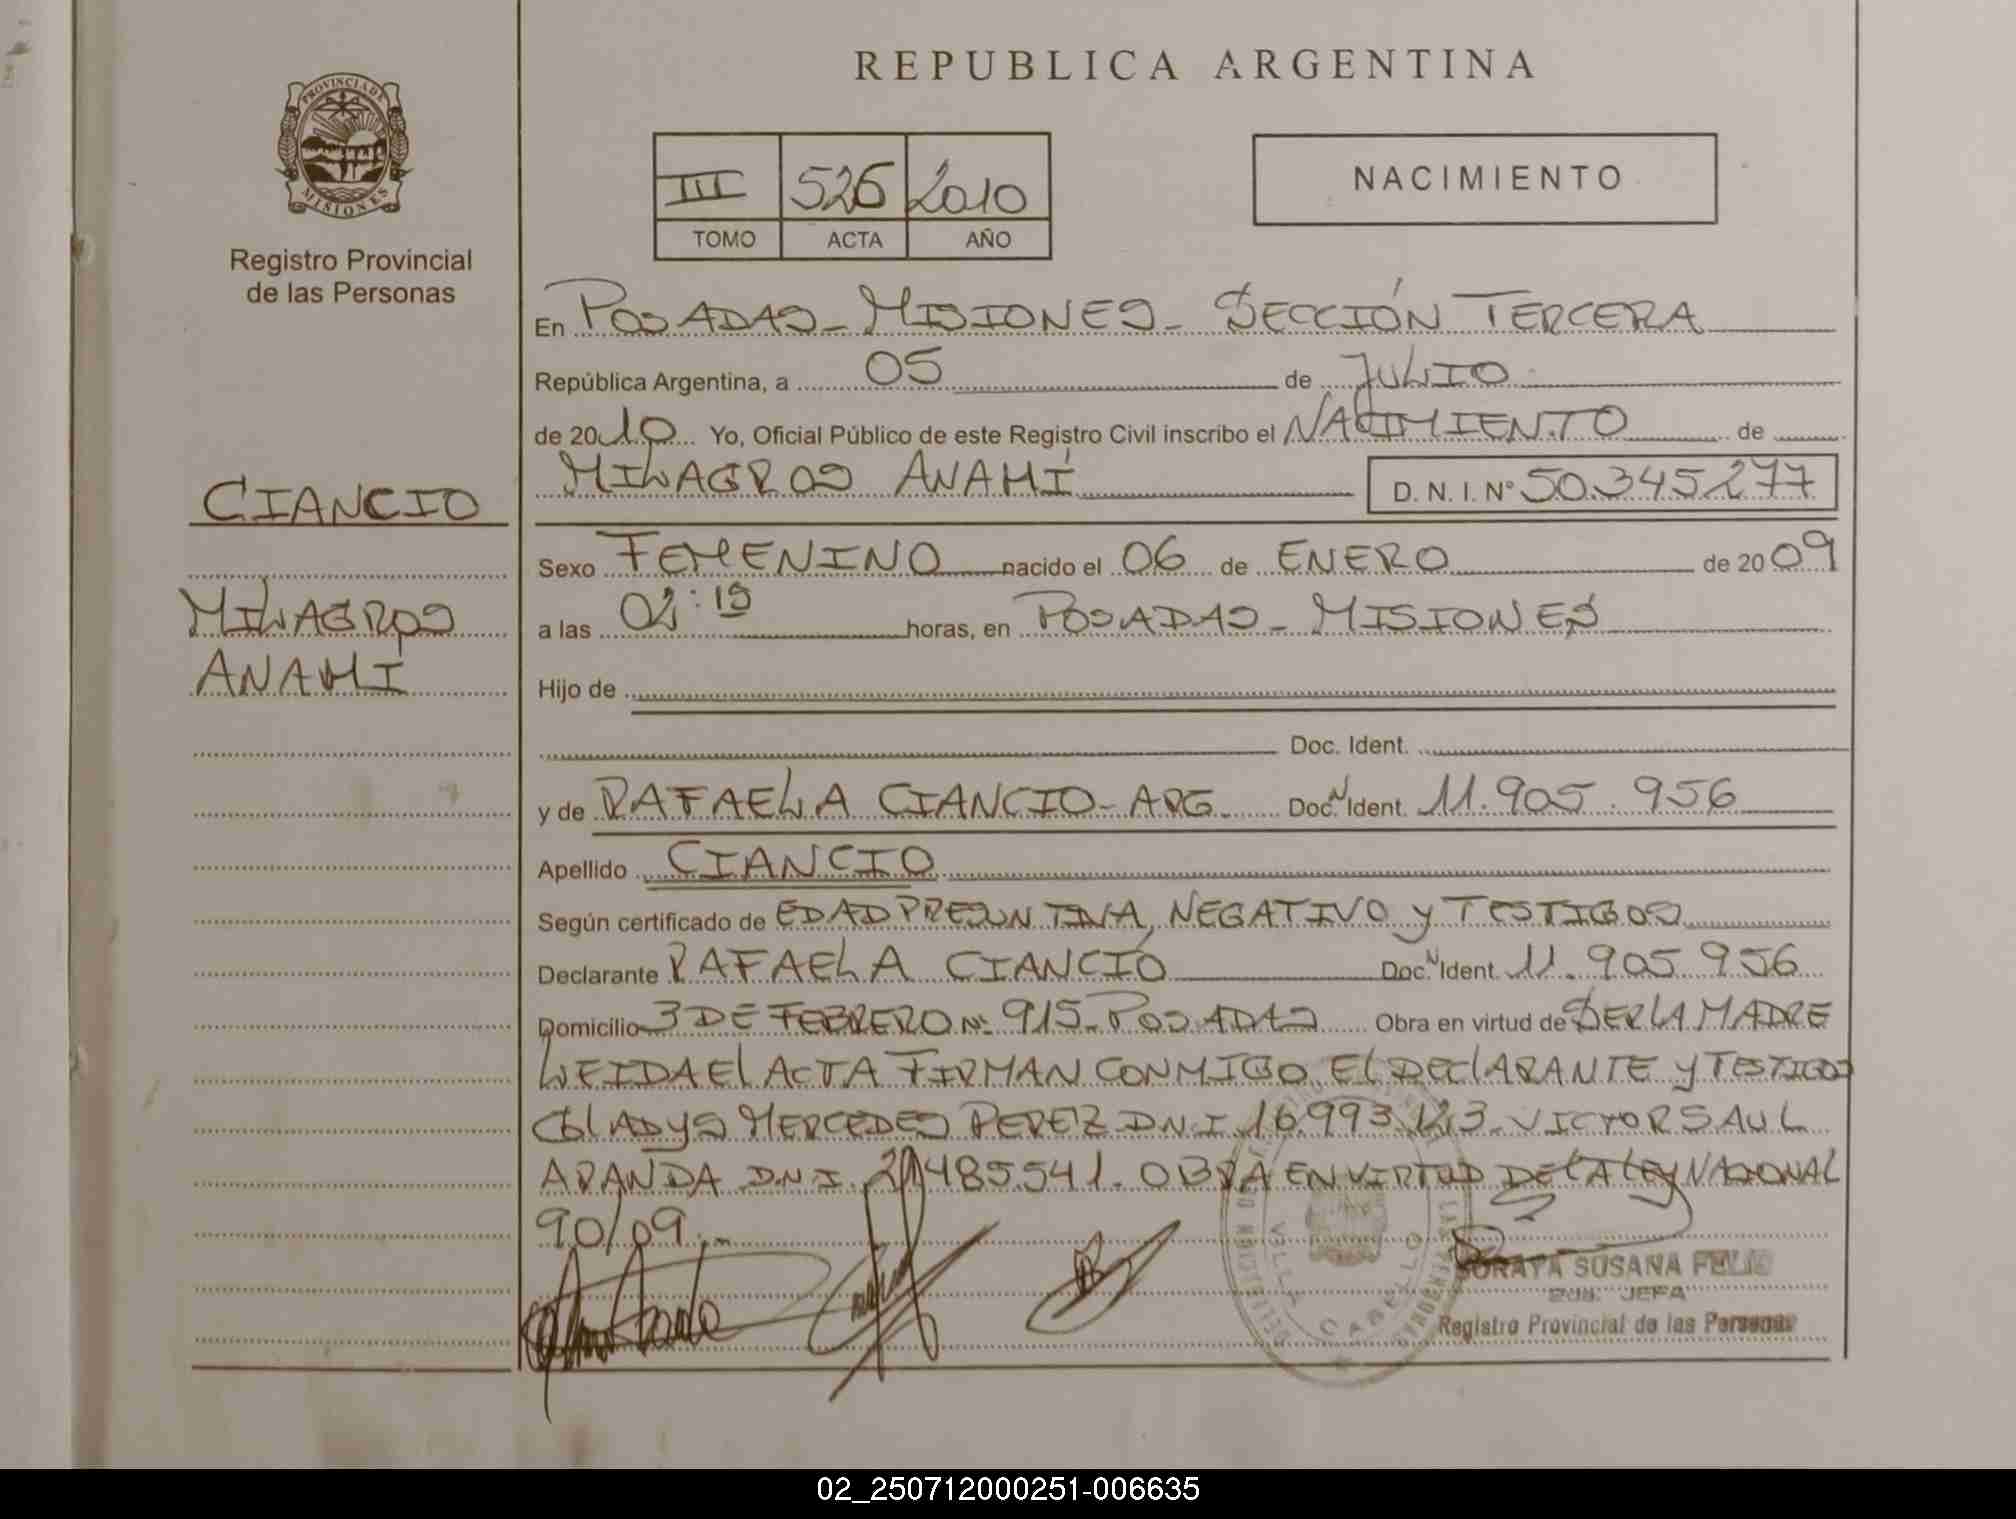 PROVINCIA DE
MISIONES
Registro Provincial
de las Personas
CIANCIO
MILAGROS
ANAHÍ
REPUBLICA ARGENTINA
III 526 2010
TOMO ACTA AÑO
NACIMIENTO
En POSADAS - MISIONES - SECCIÓN TERCERA
República Argentina, a 05 de JULIO
de 2010 Yo, Oficial Público de este Registro Civil inscribo el NACIMIENTO de
MILAGROS ANAHÍ D. N. I. Nº 50.345.277
Sexo FEMENINO nacido el 06 de ENERO de 2009
a las horas, en POSADAS - MISIONES
Hijo de
Doc. Ident.
y de RAFAELA CIANCIO - ARG. Doc. N Ident. 11.905.956
Apellido CIANCIO
Según certificado de EDAD PRESUNTIVA, NEGATIVO y TESTIGOS
Declarante RAFAELA CIANCIO Doc. N Ident. 11.905.956
Domicilio 3 DE FEBRERO Nº 915 - POSADAS Obra en virtud de SER LA MADRE
LEIDA El ACTA FIRMAN CONMIGO El DEClARANTE y TESTIGOS
GlADyS MERCEDES PEREZ D.N.I 16.993.123 - VICTOR SAUL
ARANDA D.N.I. 485.541. OBRA EN VIRTUD DE LA LEy NACIONAL
90/09.-
VILLA CABELLO
SORAYA SUSANA
JEFA
Registro Provincial de las Personas
02_250712000251-006635